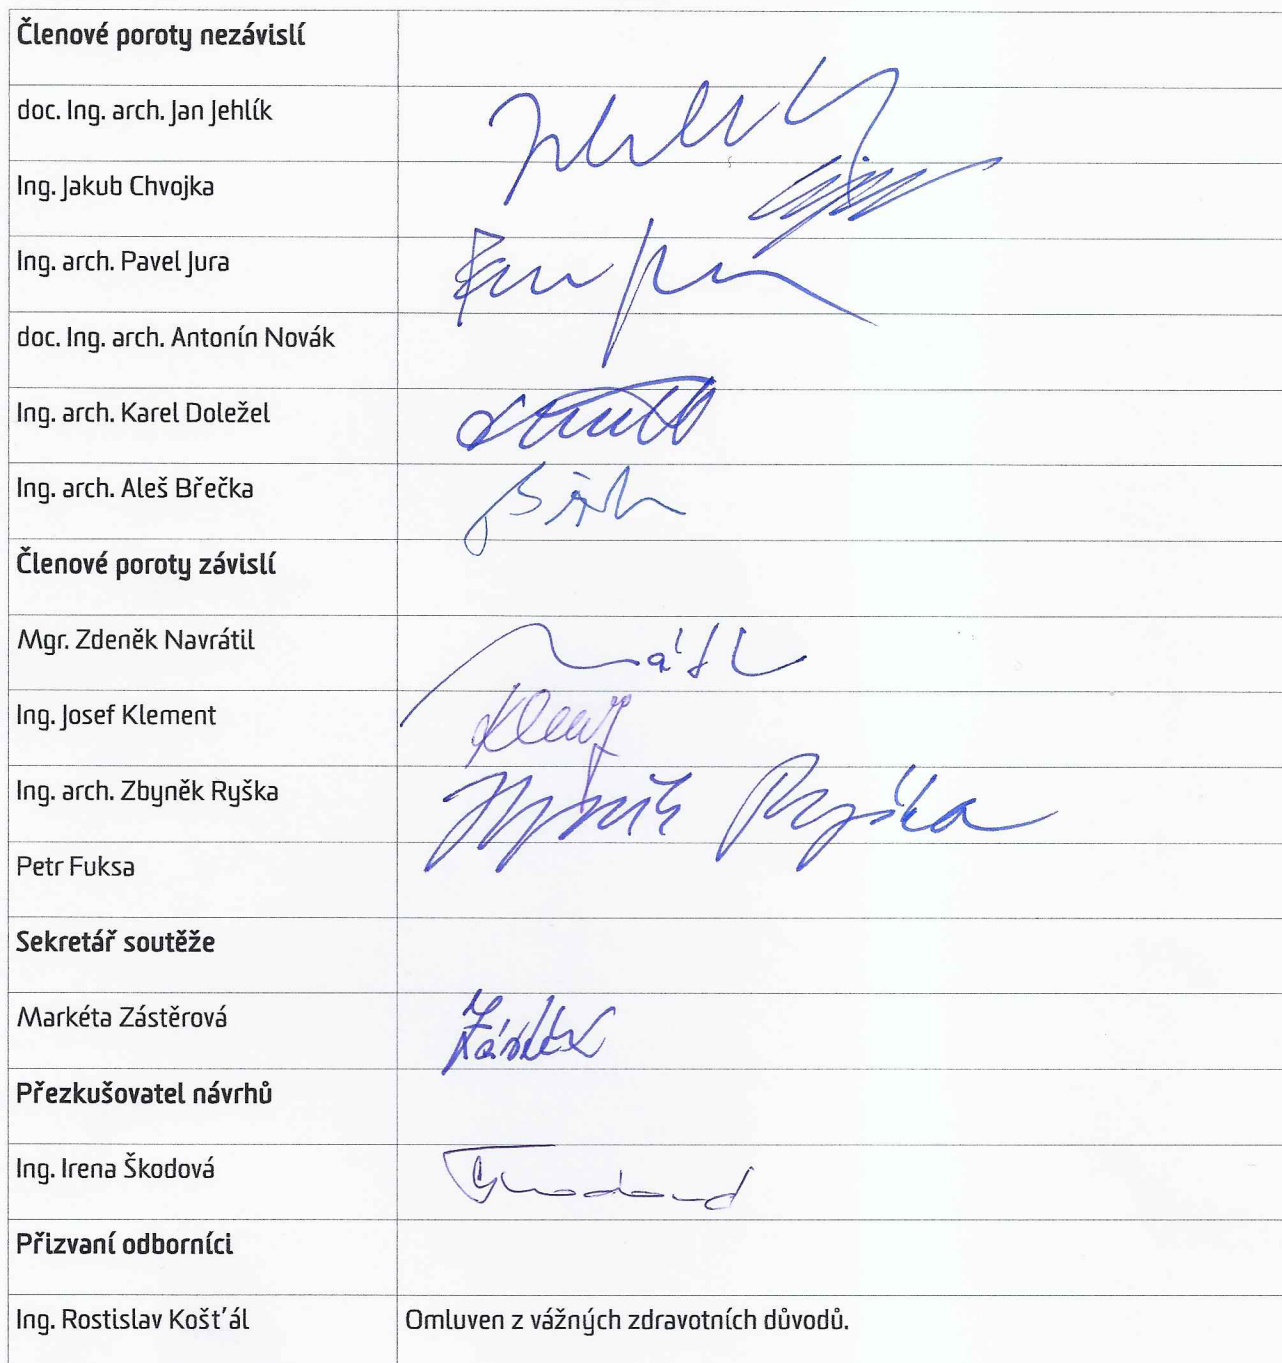 Členové poroty nezávislí
doc. Ing. arch. Jan Jehlík
Ing. Jakub Chvojka
Ing. arch. Pavel Jura
doc. Ing. arch. Antonín Novák
Ing. arch. Karel Doležel
Ing. arch. Aleš Břečka
Členové poroty závislí
Mgr. Zdeněk Navrátil
Ing. Josef Klement
Ing. arch. Zbyněk Ryška
Zbyněk Ryška
Petr Fuksa
Sekretář soutěže
Markéta Zástěrová
Přezkušovatel návrhů
Ing. Irena Škodová
Přizvaní odborníci
Ing. Rostislav Košt'ál Omluven z vážných zdravotních důvodů.